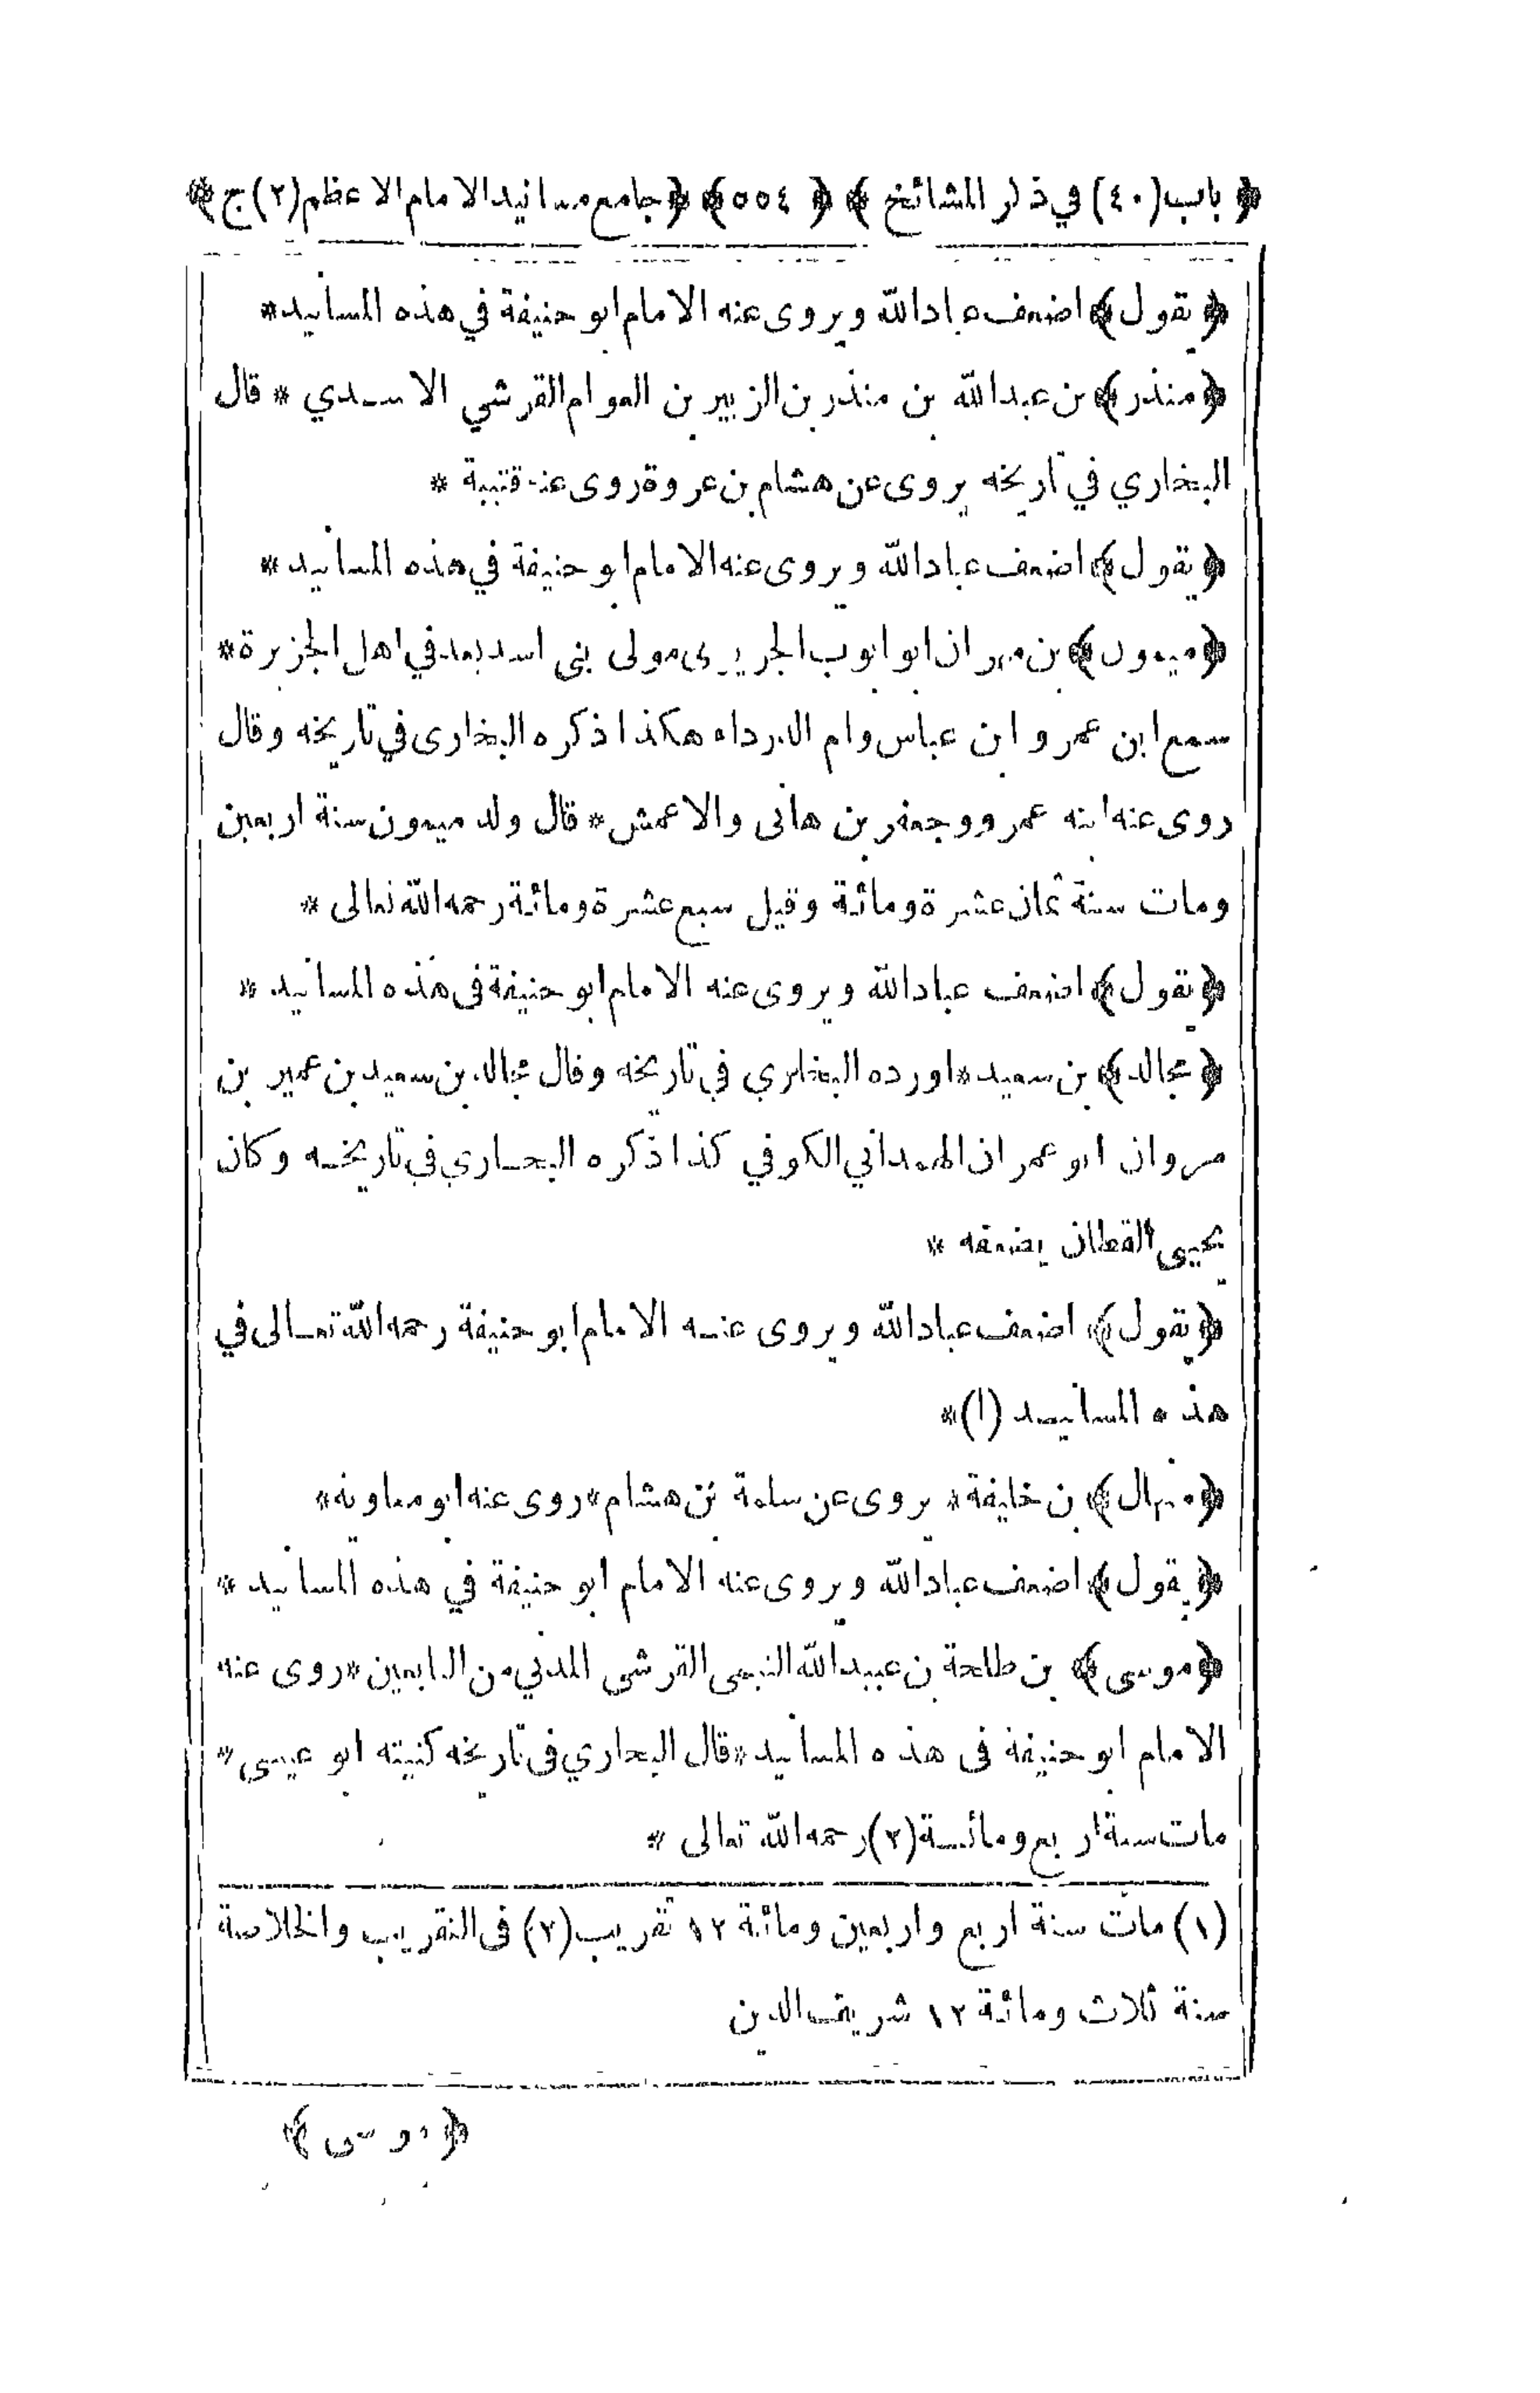 ﴿ باب (٤٠) في ذكر المشائخ ﴾ ﴿ ٥٥٤ ﴾ ﴿ جامع مسانيد الامام الاعظم (٢) ج ﴾
﴿ يقول ﴾ اضعف عباد الله ويروى عنه الامام ابو حنيفة في هذه المسانيد *
﴿ منذر ﴾ بن عبد الله بن منذر بن الزبير بن العوام القرشي الاسدي * قال
البخاري في تاريخه يروى عن هشام بن عروة روى عنه قتيبة *
﴿ يقول ﴾ اضعف عباد الله ويروى عنه الامام ابو حنيفة في هذه المسانيد *
﴿ ميمون ﴾ بن مهران ابو ايوب الجريرى مولى بنى اسد يعد في اهل الجزيرة *
سمع ابن عمر وابن عباس وام الدرداء هكذا ذكره البخارى في تاريخه وقال
روى عنه ابنه عمرو وجعفر بن هانى والاعمش * قال ولد ميمون سنة اربعين
ومات سنة ثمان عشرة ومائة وقيل سبع عشرة ومائة رحمه الله تعالى *
﴿ يقول ﴾ اضعف عباد الله ويروى عنه الامام ابو حنيفة فى هذه المسانيد *
﴿ مجالد ﴾ بن سعيد * اورده البخاري في تاريخه وقال مجالد بن سعيد بن عمير بن
مروان ابو عمران الهمداني الكوفي كذا ذكره البخاري في تاريخه وكان
يحيى القطان يضعفه *
﴿ يقول ﴾ اضعف عباد الله ويروى عنه الامام ابو حنيفة رحمه الله تعالى في
هذه المسانيد (١) *
﴿ منهال ﴾ بن خليفة * يروى عن سلمة بن هشام * روى عنه ابو معاوية *
﴿ يقول ﴾ اضعف عباد الله ويروى عنه الامام ابو حنيفة في هذه المسانيد *
﴿ موسى ﴾ بن طلحة بن عبيد الله التيمى القرشى المدني من التابعين * روى عنه
الامام ابو حنيفة فى هذه المسانيد * قال البخاري فى تاريخه كنيته ابو عيسى *
مات سنة اربع ومائة (٢) رحمه الله تعالى *
(١) مات سنة اربع واربعين ومائة ١٢ تقريب (٢) فى التقريب والخلاصة
سنة ثلاث ومائة ١٢ شريف الدين
﴿ موسى ﴾